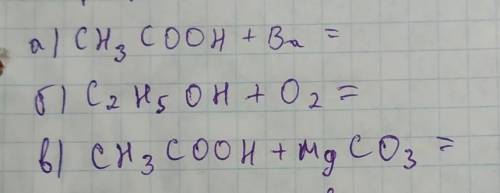 а) CH₃COOH + Ba =
б) C₂H₅OH + O₂ =
в) CH₃COOH + MgCO₃ =